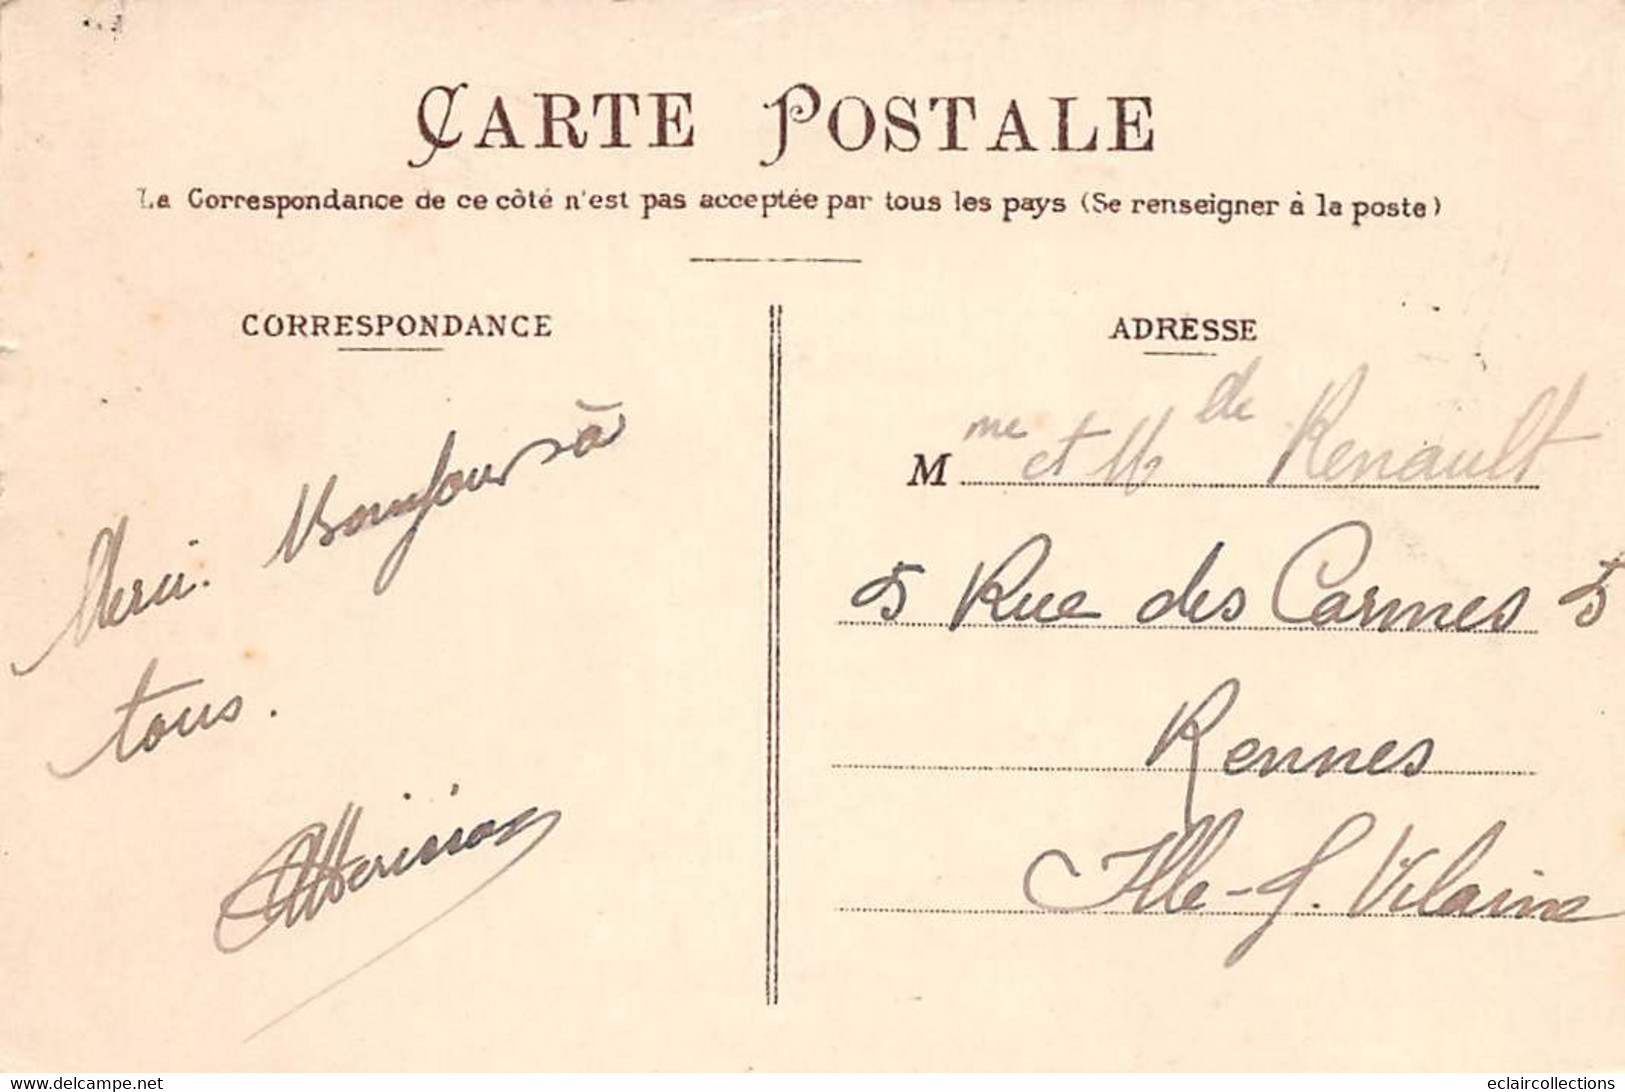 CARTE POSTALE
La Correspondance de ce côté n'est pas acceptée par tous les pays (Se renseigner à la poste)
CORRESPONDANCE
Merci. Bonjour à
tous.
ADRESSE
Mme et Mlle Renault
5 Rue des Carmes 5
Rennes
Ille-&-Vilaine
www.delcampe.net
eclaircollections